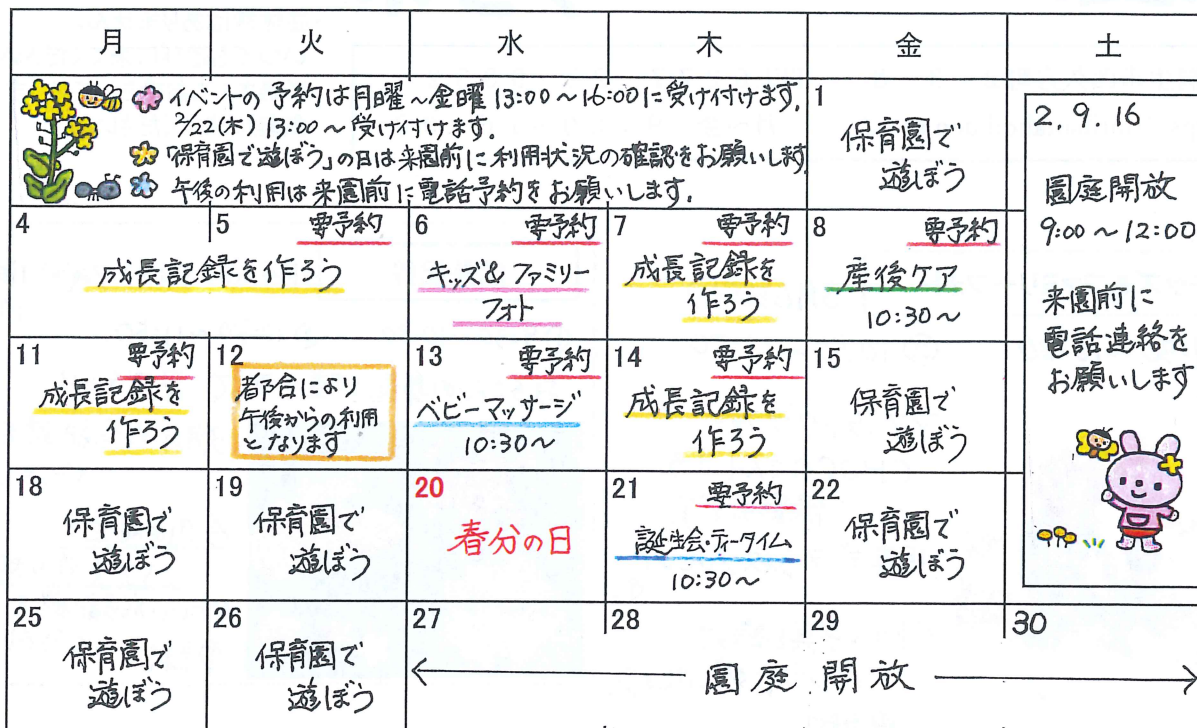 月 火 水 木 金 土
イベントの予約は月曜～金曜 13:00～16:00に受け付けます。
2/22(木) 13:00～受け付けます。
「保育園で遊ぼう」の日は来園前に利用状況の確認をお願いします
午後の利用は来園前に電話予約をお願いします。
1
保育園で
遊ぼう
2. 9. 16
園庭開放
9:00～12:00
来園前に
電話連絡を
お願いします
4
5 要予約
成長記録を作ろう
6 要予約
キッズ&ファミリー
フォト
7 要予約
成長記録を
作ろう
8 要予約
産後ケア
10:30～
11 要予約
成長記録を
作ろう
12
都合により
午後からの利用
となります
13 要予約
ベビーマッサージ
10:30～
14 要予約
成長記録を
作ろう
15
保育園で
遊ぼう
18
保育園で
遊ぼう
19
保育園で
遊ぼう
20
春分の日
21 要予約
誕生会・ティータイム
10:30～
22
保育園で
遊ぼう
25
保育園で
遊ぼう
26
保育園で
遊ぼう
27 28 29 30
園庭開放